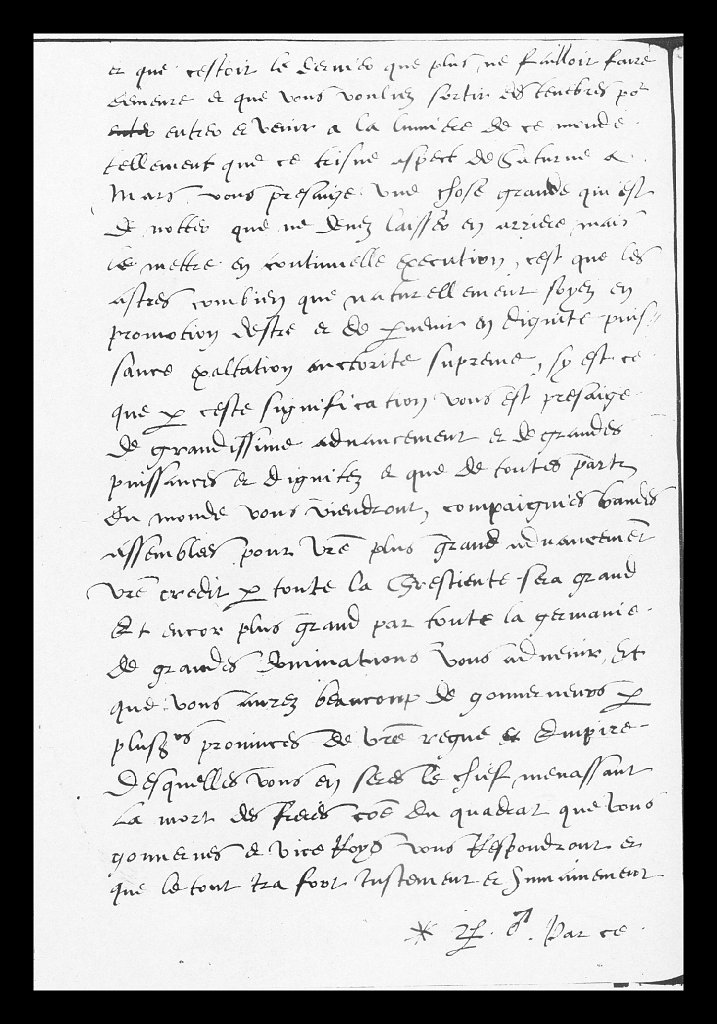 et que cestoit le dernier que plus ne failloit faire
demeure et que vous vouliez sortir des tenebres po^r
entrer et venir a la lumiere de ce monde
tellement que ce trisne aspect de Saturne &
Mars vous presaige une chose grande qui est
de notter que ne devez laisser en arriere, mais
le mettre en continuelle execution, cest que les
astres combien que naturellement soyez en
promotion destre et de pvenir en dignite puis-
sance exaltation auctorite supreme, sy est ce
que p ceste signification vous est presaige
de grandissime advancement et de grandes
puissances et dignitez et que de toutes partz
du monde vous viendront, compaignies bandes
assemblees pour vre plus grand advancement
vre credit p toute la Chrestiente sera grand
Et encor plus grand par toute la germanie
de grandes dominations vous advenir, Et
que vous aurez beaucoup de gouverneurs p
plus^rs provinces de vre regne et Empire
Desquelles vous en seres le chief, menassant
la mort des freres coe du quadrat que vous
gouvernes et vice Roys vous Respondront et
que le tout ira fort Justement et
* ♃ . ♂ . Par ce